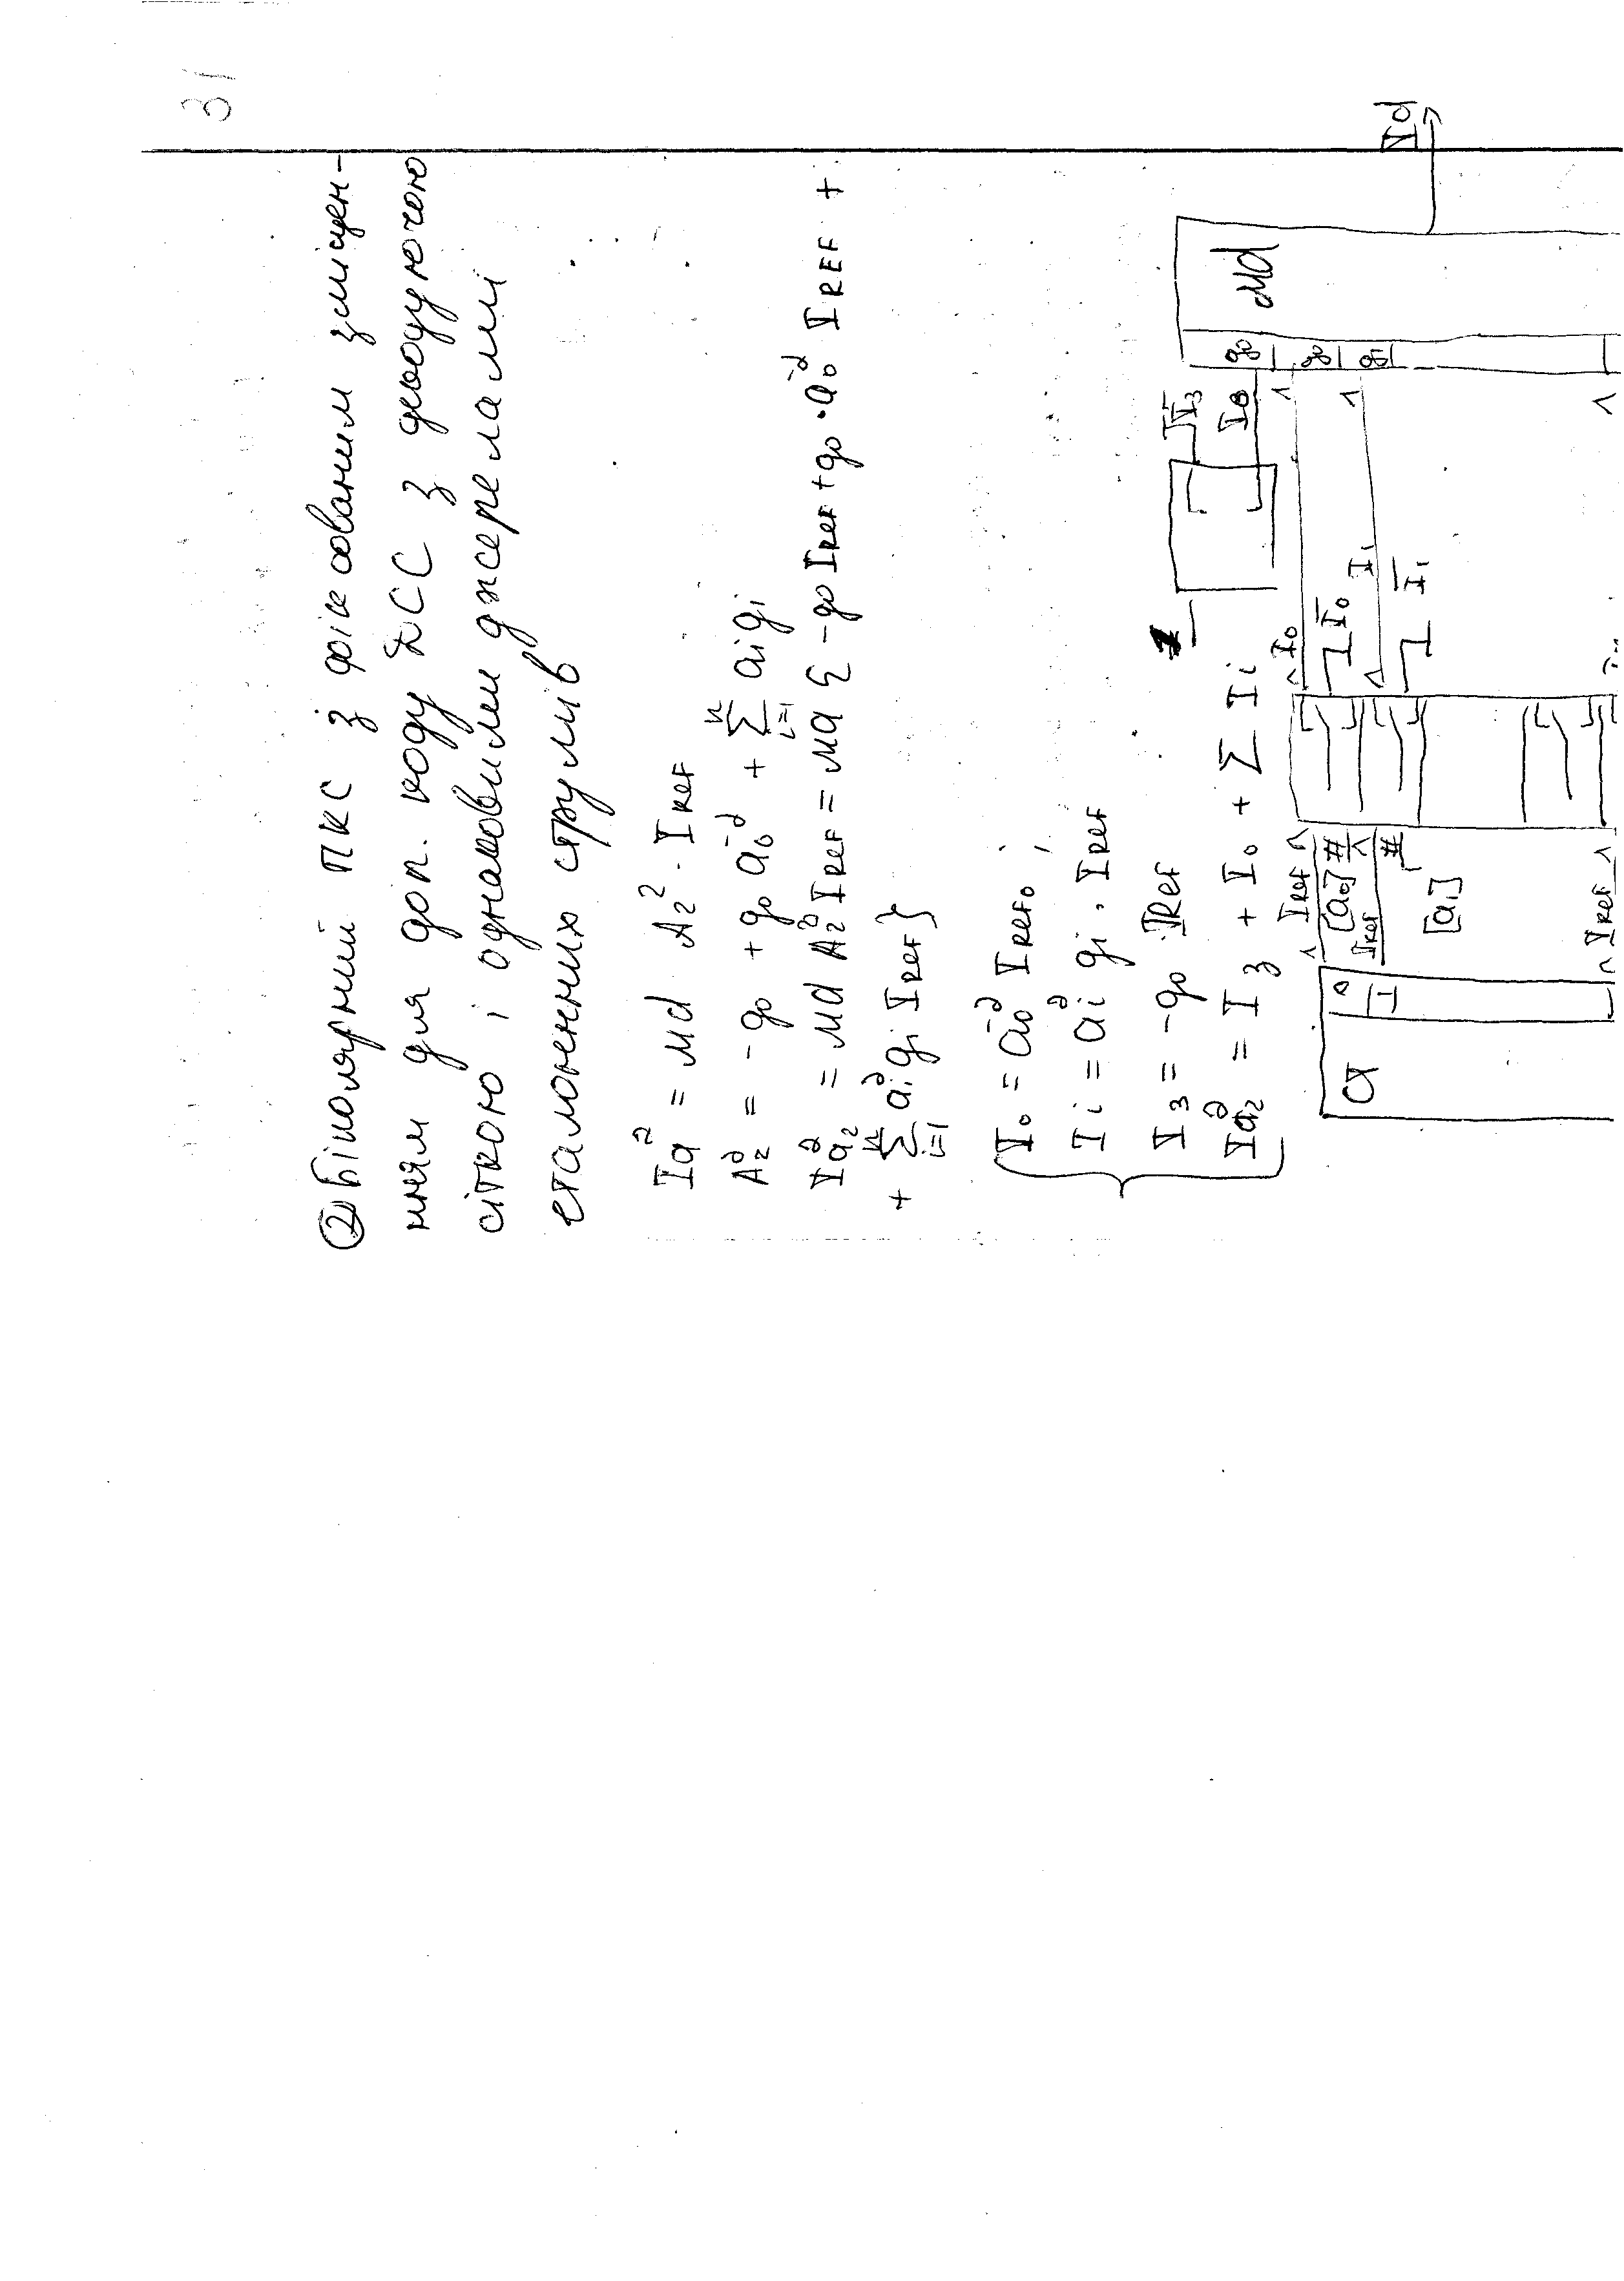 31
② Біполярний ПКС з фіксованим зміщен-
ням для доп. коду ДСС з декодуючою
сіткою і однаковими джерелами
еталонних струмів
Ia^∂ = Md A₂^∂ · I_REF
A₂^∂ = -g₀ + g₀ ā₀^∂ + Σ_{i=1}^{n} aᵢgᵢ
Ia₂^∂ = Md A₂^∂ I_REF = Md { -g₀ I_REF + g₀ · ā₀^∂ I_REF +
+ Σ_{i=1}^{n} aᵢ^∂ gᵢ I_REF }
I₀ = ā₀^∂ I_REF₀ ;
Iᵢ = aᵢ^∂ gᵢ · I_REF
I_з = -g₀ · I_REF
Ia₂^∂ = I_з + I₀ + Σ Iᵢ
1
I₃
I₀
g₀
g₀
Md
Id
I₀
Ī₀
I₁
Ī₁
a
0
1
I_REF
[a₀] #
I_REF
#
[a₁]
I_REF